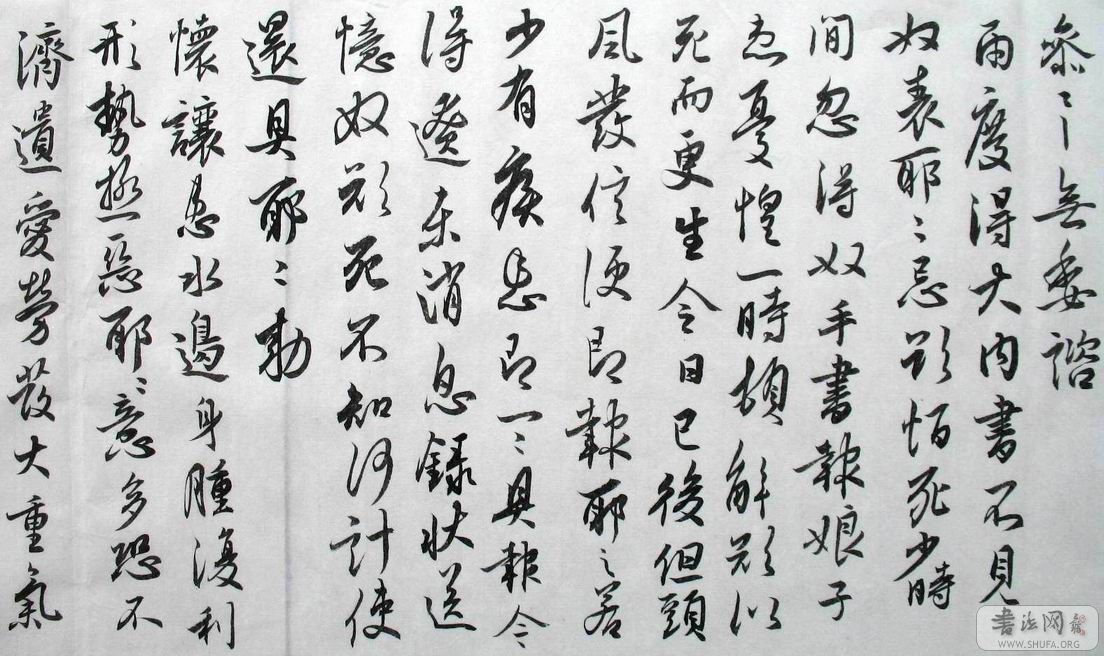 無委諮
兩度得大内書不見
奴表耶〻忌欲恒死少時
間忽得奴手書報娘子
患憂惶一時頓解欲似
死而更生今日已後但頭
風發信便即報耶〻若
少有疾患即一〻具報今
得遼東消息錄狀送
憶奴欲死不知何計使
還具耶〻勅
懷讓患水邊身腫復利
形勢極惡耶〻意多恐不
濟遺愛勞發大重氣
書法网
WWW.SHUFA.ORG